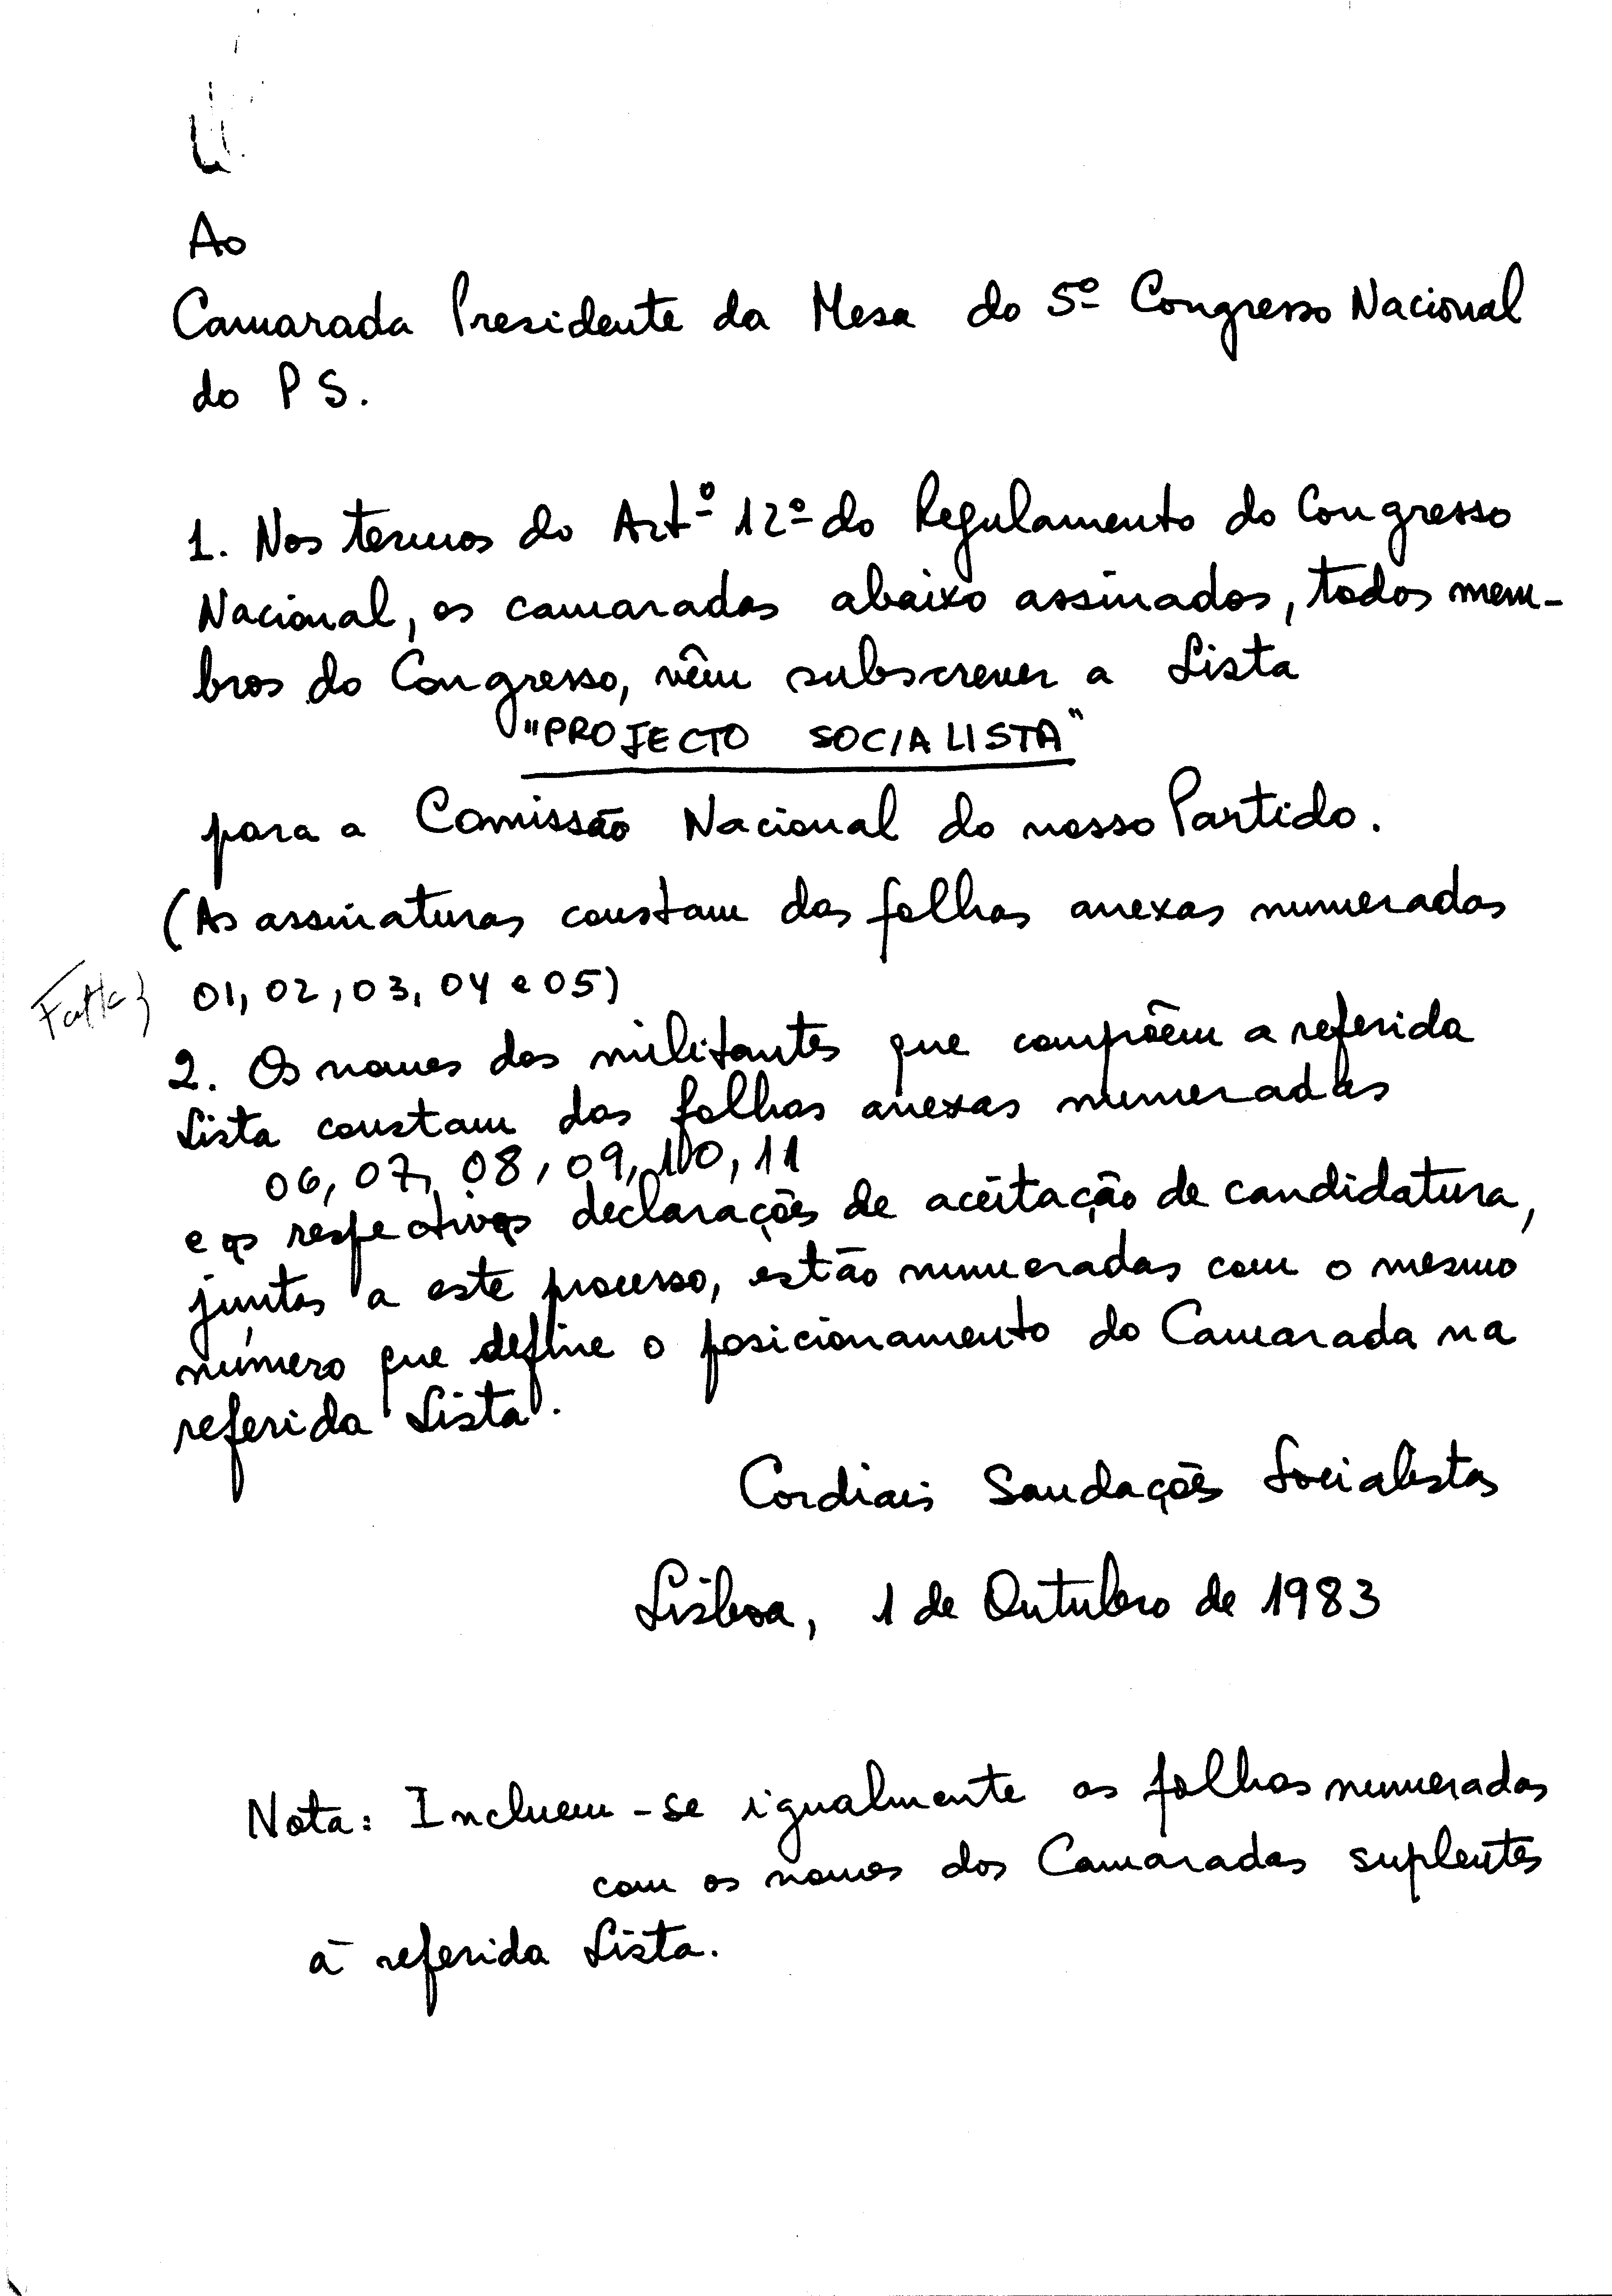 Ao
Camarada Presidente da Mesa do 5º Congresso Nacional
do PS.
1. Nos termos do Artº 12º do Regulamento do Congresso
Nacional, os camaradas abaixo assinados, todos mem-
bros do Congresso, vêm subscrever a Lista
"PROJECTO SOCIALISTA"
para a Comissão Nacional do nosso Partido.
(As assinaturas constam das folhas anexas numeradas
01, 02, 03, 04 e 05)
2. Os nomes dos militantes que compõem a referida
Lista constam das folhas anexas numeradas
06, 07, 08, 09, 10, 11
e as respectivas declarações de aceitação de candidatura,
juntas a este processo, estão numeradas com o mesmo
número que define o posicionamento do Camarada na
referida Lista.
Cordiais Saudações Socialistas
Lisboa, 1 de Outubro de 1983
Nota: Incluem-se igualmente as folhas numeradas
com os nomes dos Camaradas suplentes
à referida Lista.